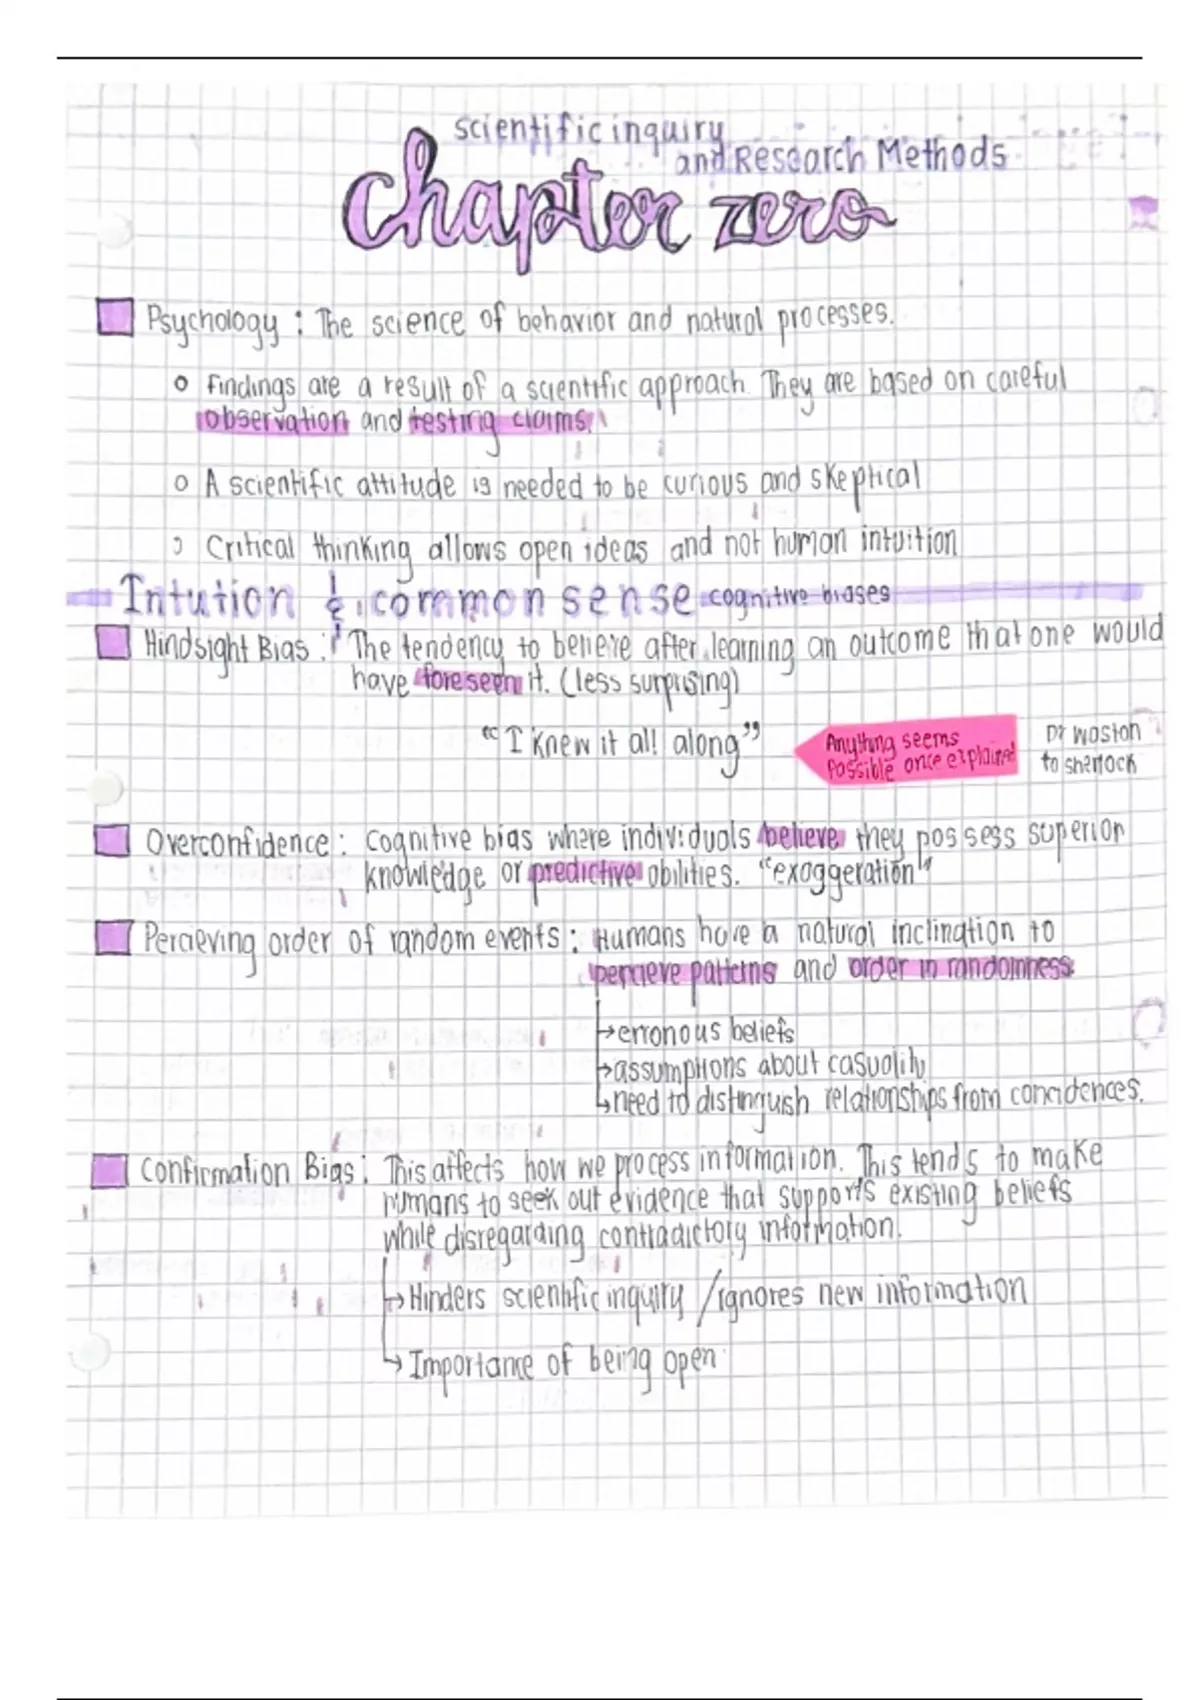 scientific inquiry
and Research Methods
chapter zero
Psychology : The science of behavior and natural processes.
Findings are a result of a scientific approach. They are based on careful
observation and testing claims.
A scientific attitude is needed to be curious and skeptical
Critical thinking allows open ideas and not human intuition
Intution & common sense cognitive biases
Hindsight Bias : The tendency to believe after learning an outcome that one would
have foreseen it. (less surprising)
"I knew it all along"
Anything seems
possible once explained
Dr waston
to sherlock
Overconfidence : Cognitive bias where individuals believe they possess superior
knowledge or predictive abilities. "exaggeration"
Percieving order of random events : Humans have a natural inclination to
percieve patterns and order in randomness.
→erronous beliefs
→assumptions about casuality
↳need to distinguish relationships from concidences.
Confirmation Bias : This affects how we process information. This tends to make
humans to seek out evidence that supports existing beliefs
while disregarding contradictory information.
→Hinders scientific inquiry /ignores new information
↳Importance of being open